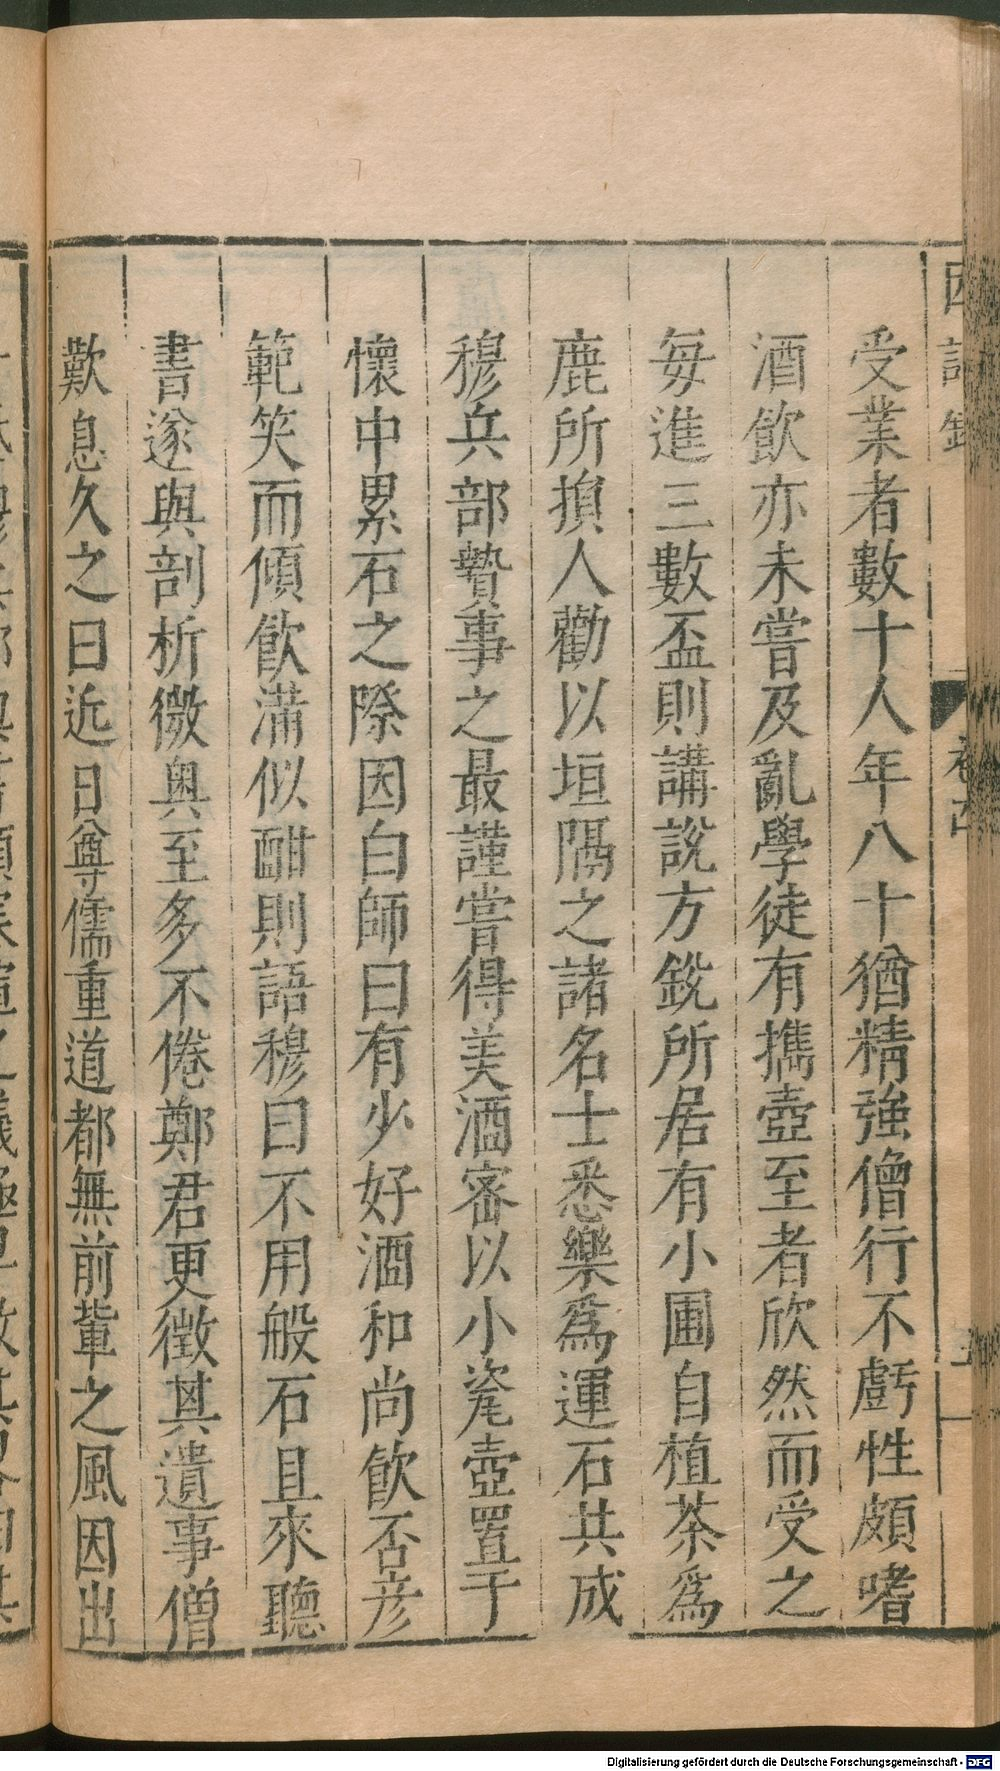 因話錄 卷六
受業者數十人年八十猶精強僧行不虧性頗嗜
酒飲亦未嘗及亂學徒有攜壺至者欣然而受之
每進三數盃則講說方銳所居有小圃自植茶為
鹿所損人勸以垣隔之諸名士悉樂為運石共成
穆兵部贄事之最謹嘗得美酒密以小瓷壺置于
懷中累石之際因白師曰有少好酒和尚飲否彥
範笑而傾飲滿似酣則語穆曰不用般石且來聽
書遂與剖析微奧至多不倦鄭君更徵其遺事僧
歎息久之曰近日尊儒重道都無前輩之風因出
Digitalisierung gefördert durch die Deutsche Forschungsgemeinschaft - DFG